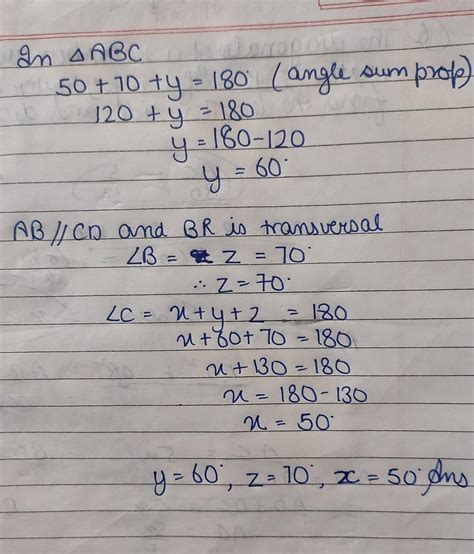 In △ABC
50+70+y=180° (angle sum prop)
120+y=180
y=180-120
y=60°
AB//CD and BR is transversal
∠B= z=70°
∴ z=70°
∠C= x+y+z =180
x+60+70=180
x+130=180
x=180-130
x=50°
y=60°, z=70°, x=50° Ans